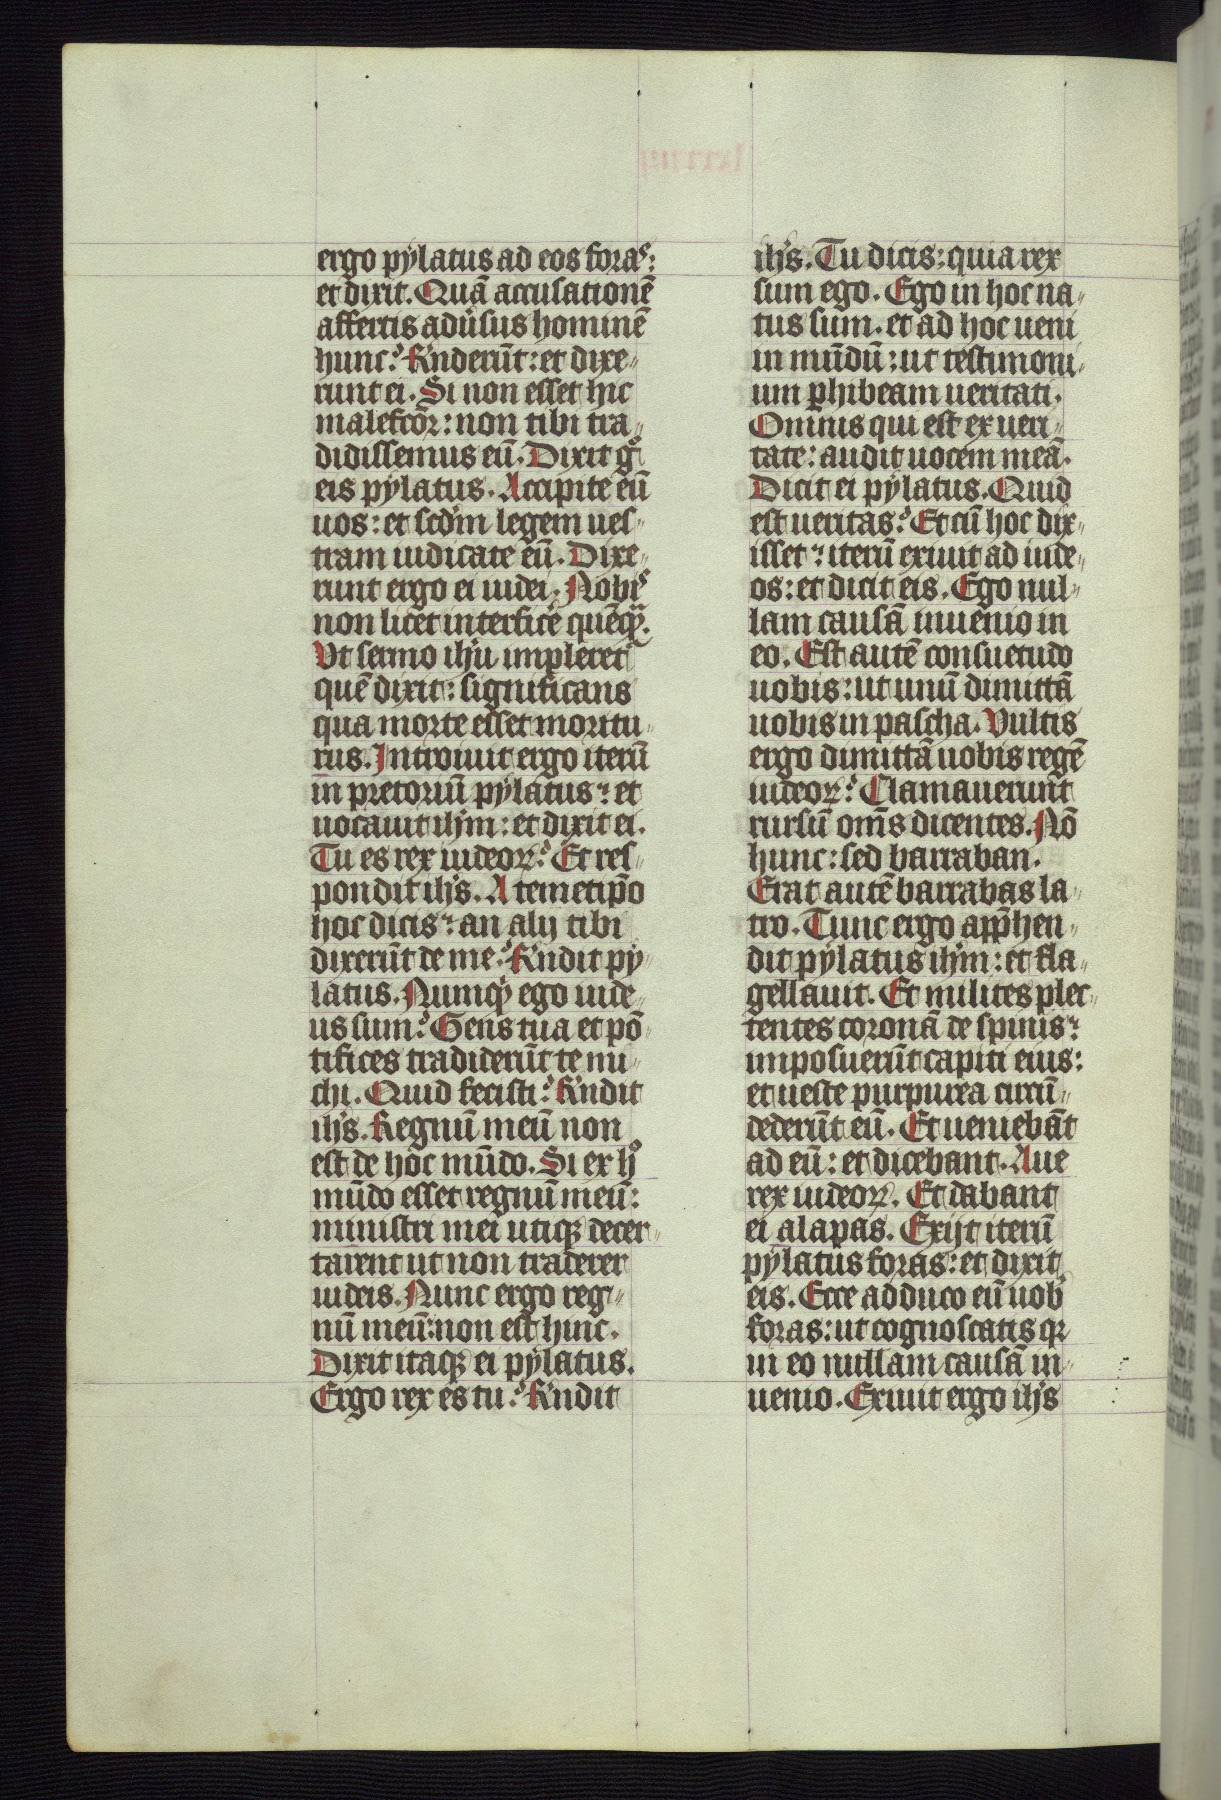 ergo pylatus ad eos foras:
et dixit. Quā accusationē
affertis adūsus hominē
hunc? R̄nderūt: et dixe„
runt ei. Si non esset hic
malefcōr: non tibi tra„
didissemus eū. Dixit gͦ
eis pylatus. Accipite eū
uos: et scdm̄ legem ues„
tram iudicate eū. Dixe„
runt ergo ei iudei. Nobis
non licet interficē quēq̄.
Vt sermo ihū impleret
quē dixit: significans
qua morte esset moritu„
rus. Introiuit ergo iterū
in pretoriū pylatus: et
uocauit ihm̄: et dixit ei.
Tu es rex iudeoꝝ? Et res„
pondit ihs̄. A temetip̄o
hoc dicis: an alij tibi
dixerūt de me? R̄ndit py„
latus. Numq̄ ego iude„
us sum? Gens tua et pō„
tifices tradiderūt te mi„
chi. Quid fecisti? R̄ndit
ihs̄. Regnū meū non
est de hoc mūdo. Si ex hͦ
mūdo esset regnū meū:
ministri mei utiqꝫ decer„
tarent ut non traderer
iudeis. Nunc ergo reg„
nū meū: non est hinc.
Dixit itaqꝫ ei pylatus.
Ergo rex es tu? R̄ndit
ihs̄. Tu dicis: quia rex
sum ego. Ego in hoc na„
tus sum. et ad hoc ueni
in mūdū: ut testimoni„
um ꝑhibeam ueritati.
Omnis qui est ex ueri„
tate: audit uocem meā.
Dicit ei pylatus. Quid
est ueritas? Et cū hoc dix„
isset: iterū exiuit ad iude„
os: et dicit eis. Ego nul„
lam causā inuenio in
eo. Est autē consuetudo
uobis: ut unū dimittā
uobis in pascha. Vultis
ergo dimittā uobis regē
iudeoꝝ? Clamauerunt
rursū om̄s dicentes. Nō
hunc: sed barraban.
Erat autē barrabas la„
tro. Tunc ergo app̄hen„
dit pylatus ihm̄: et fla„
gellauit. Et milites plec„
tentes coronā de spinis:
imposuerūt capiti eius:
et ueste purpurea circū„
dederūt eū. Et ueniebāt
ad eū: et dicebant. Aue
rex iudeoꝝ. Et dabant
ei alapas. Exijt iterū
pylatus foras: et dixit
eis. Ecce adduco eū uob̾
foras: ut cognoscatis qꝛ
in eo nullam causā in„
uenio. Exiuit ergo ihs̄